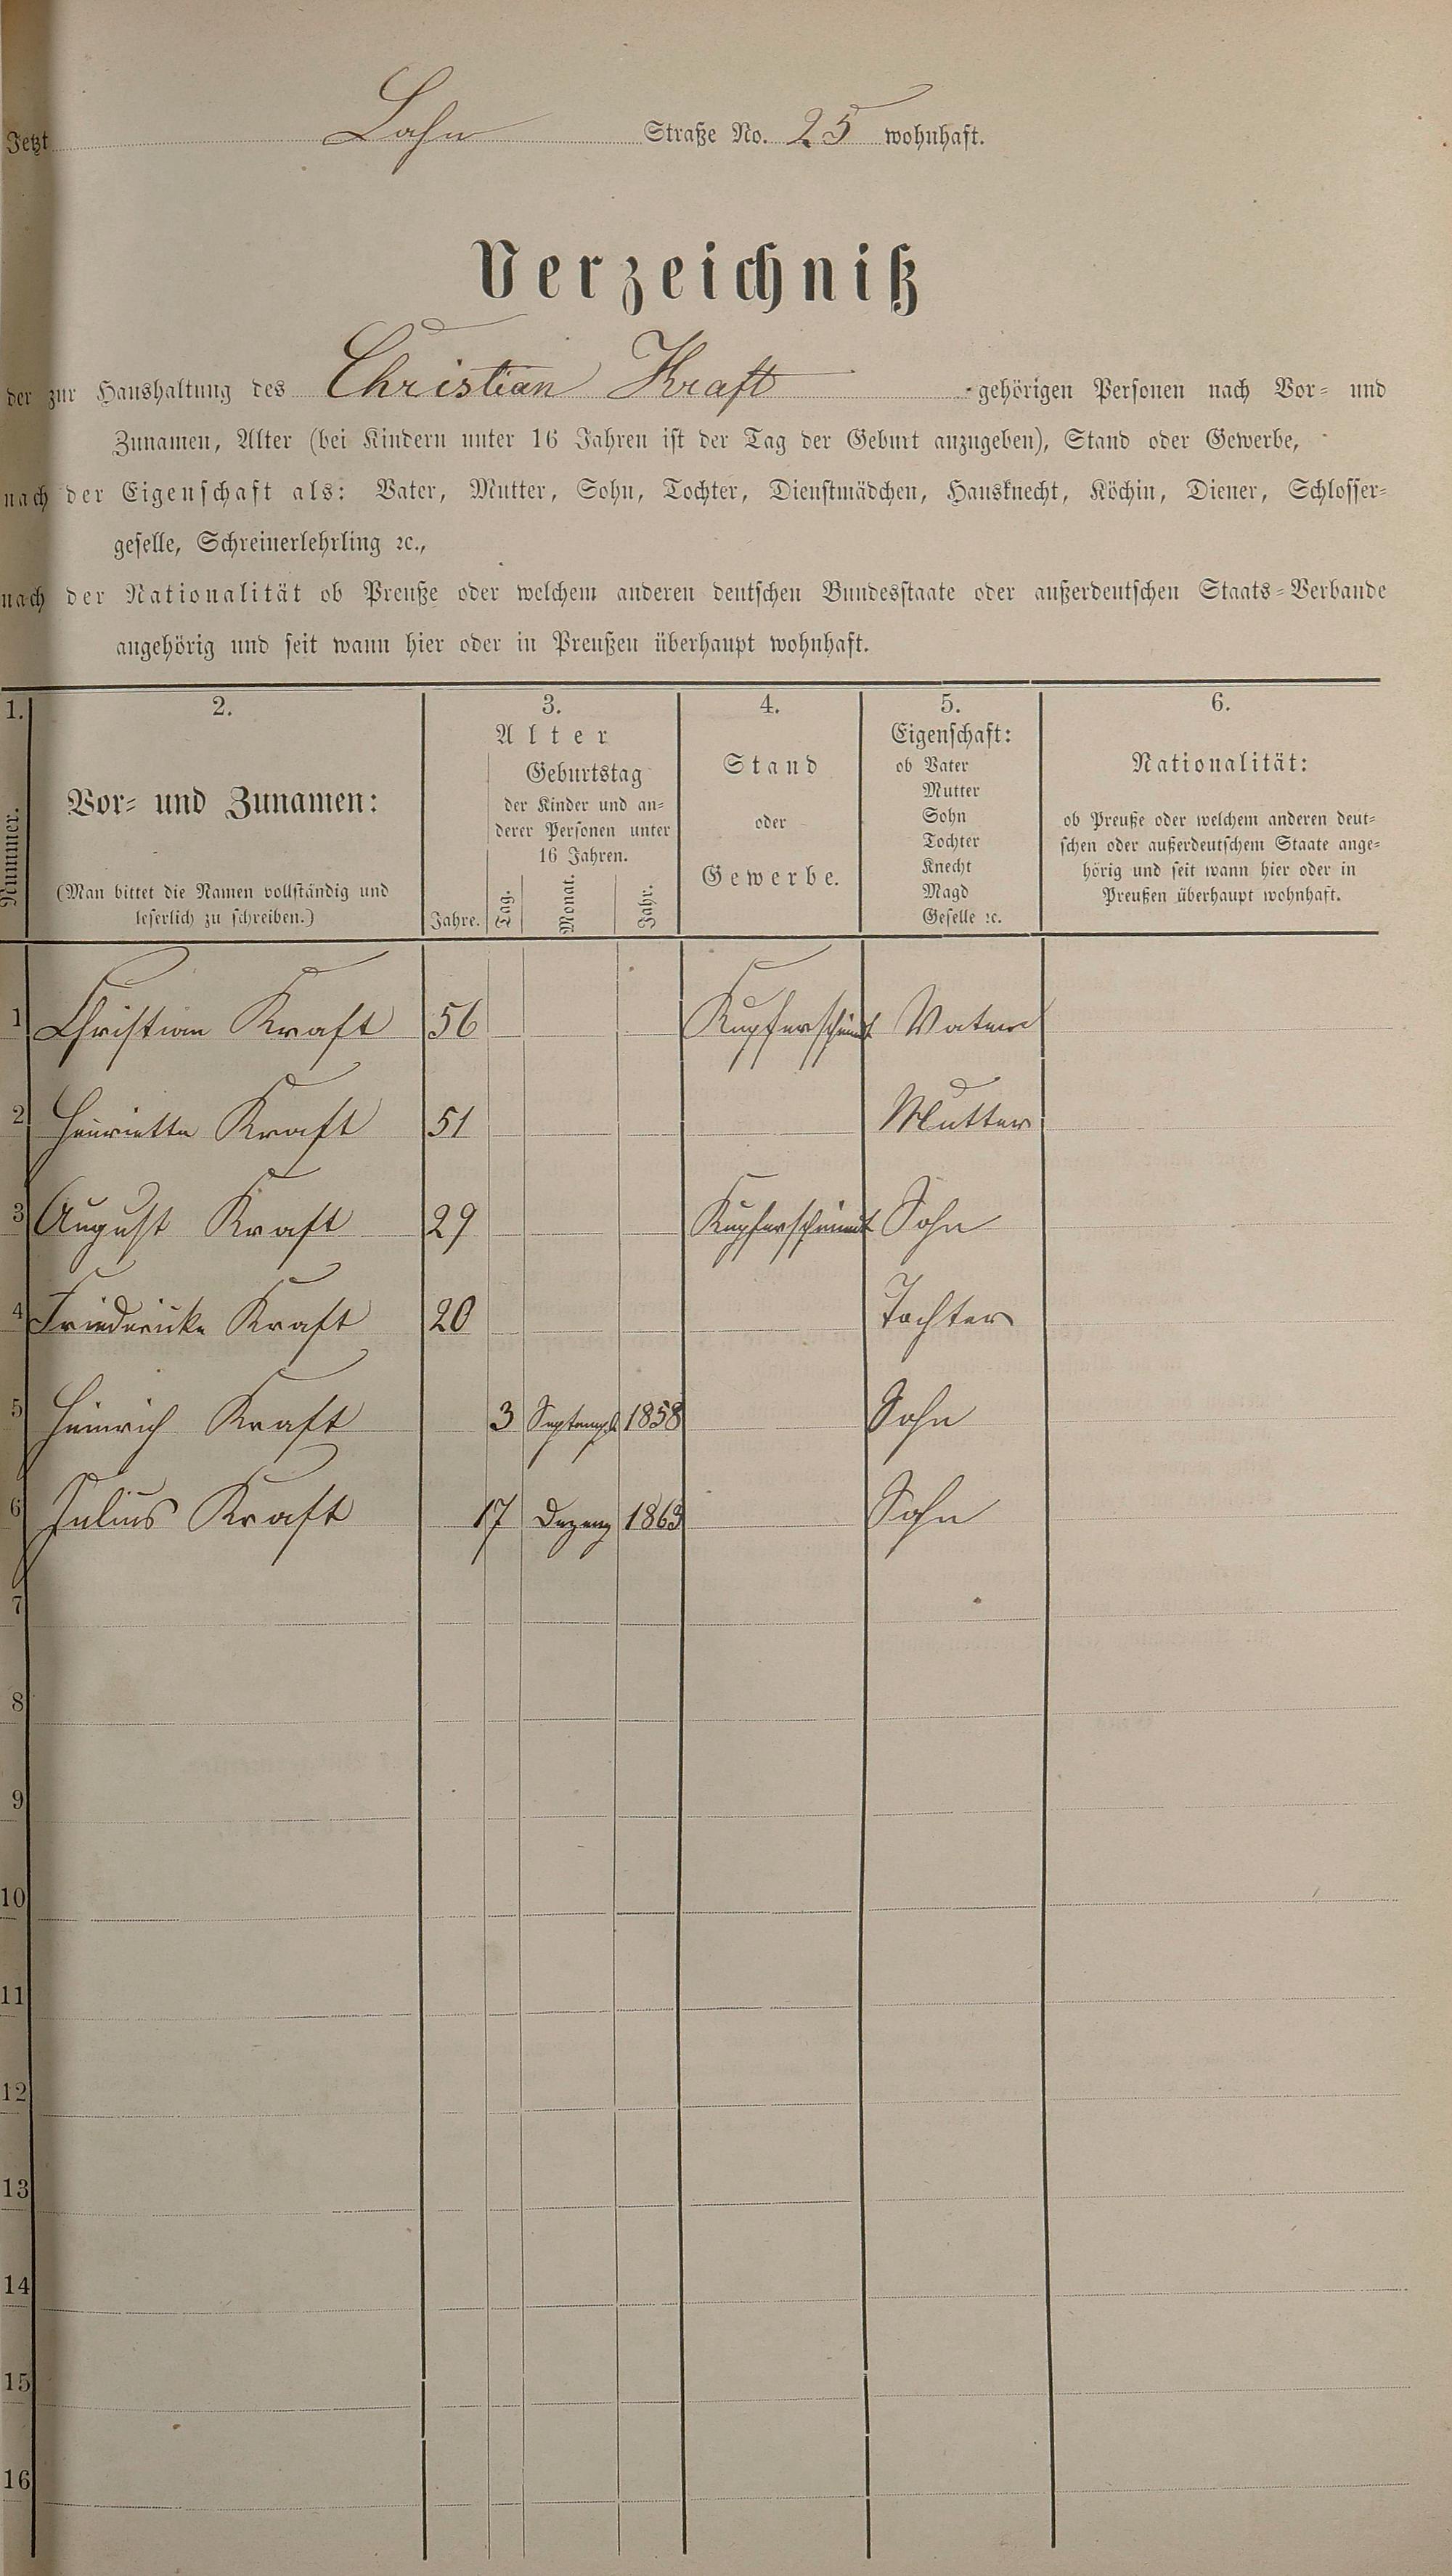 Jetzt Lahn Straße No. 25 wohnhaft.
Verzeichniß
der zur Haushaltung des Christian Kraft gehörigen Personen nach Vor- und
Zunamen, Alter (bei Kindern unter 16 Jahren ist der Tag der Geburt anzugeben), Stand oder Gewerbe,
nach der Eigenschaft als: Vater, Mutter, Sohn, Tochter, Dienstmädchen, Hausknecht, Köchin, Diener, Schlosser-
geselle, Schreinerlehrling ꝛc.,
nach der Nationalität ob Preuße oder welchem anderen deutschen Bundesstaate oder außerdeutschen Staats-Verbande
angehörig und seit wann hier oder in Preußen überhaupt wohnhaft.
1.
Nummer.
2.
Vor- und Zunamen:
(Man bittet die Namen vollständig und
leserlich zu schreiben.)
3.
Alter
Jahre.
Geburtstag
der Kinder und an-
derer Personen unter
16 Jahren.
Tag. Monat. Jahr.
4.
Stand
oder
Gewerbe.
5.
Eigenschaft:
ob Vater
Mutter
Sohn
Tochter
Knecht
Magd
Geselle ꝛc.
6.
Nationalität:
ob Preuße oder welchem anderen deut-
schen oder außerdeutschem Staate ange-
hörig und seit wann hier oder in
Preußen überhaupt wohnhaft.
1 Christian Kraft 56 Kupferschmidt Vater
2 Henriette Kraft 51 Mutter
3 August Kraft 29 Kupferschmidt Sohn
4 Friedericke Kraft 20 Tochter
5 Heinrich Kraft 3 1858 Sohn
6 Julius Kraft 17 1863 Sohn
7
8
9
10
11
12
13
14
15
16